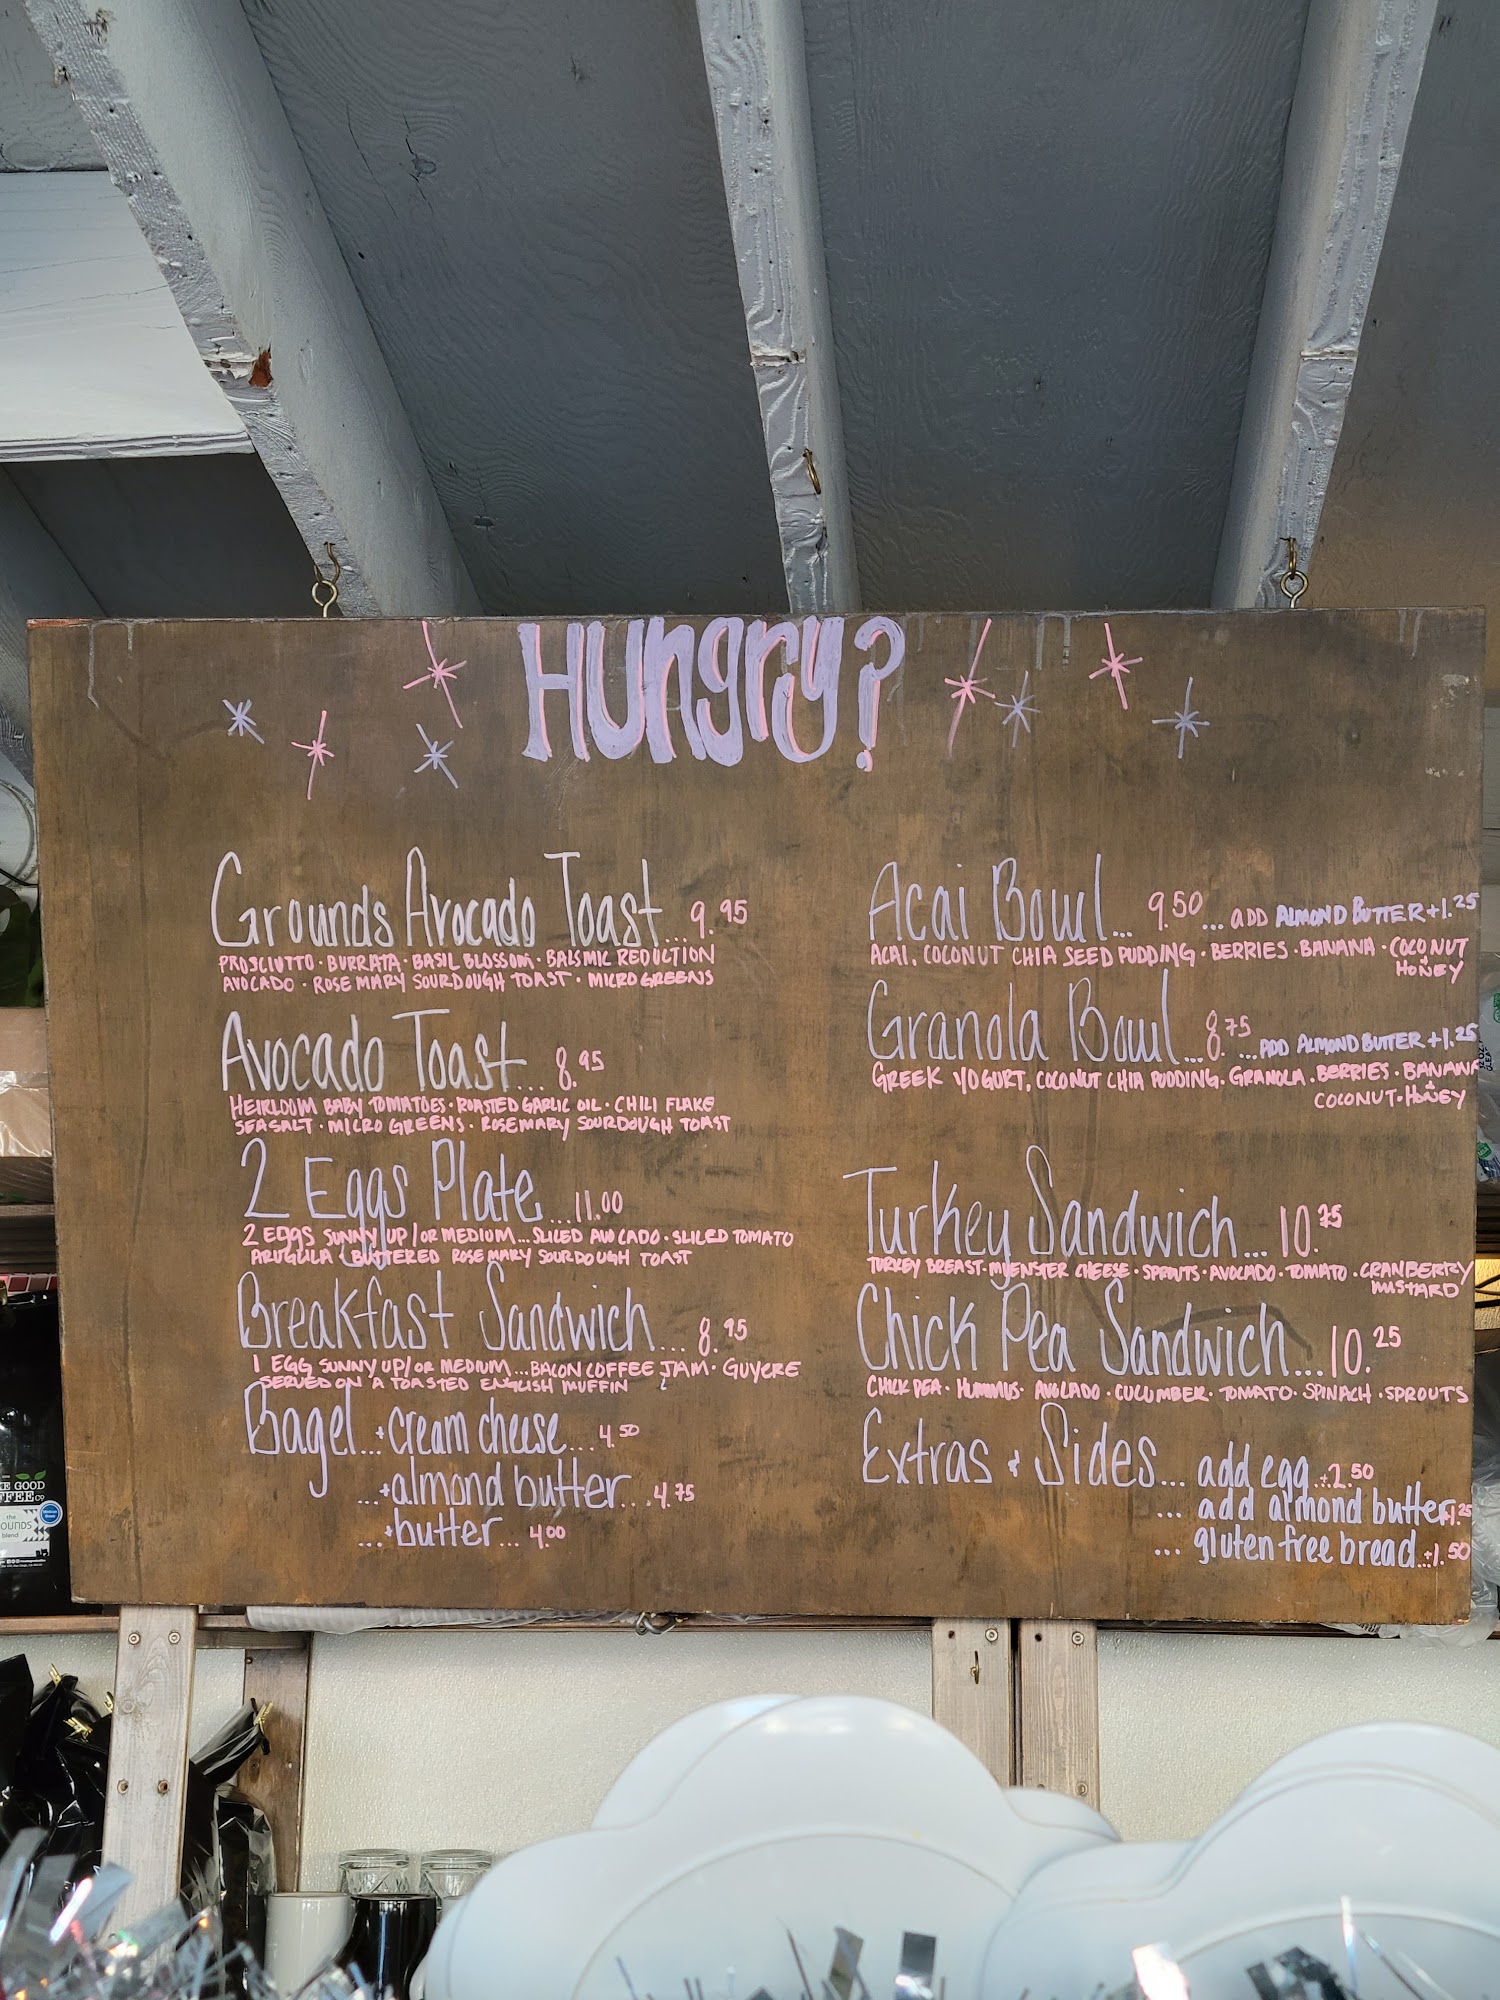 Hungry?
Grounds Avocado Toast... 9.95
PROSCIUTTO · BURRATA · BASIL BLOSSOM · BALSMIC REDUCTION
AVOCADO · ROSEMARY SOURDOUGH TOAST · MICROGREENS
Avocado Toast... 8.95
HEIRLOOM BABY TOMATOES · ROASTED GARLIC OIL · CHILI FLAKE
SEASALT · MICRO GREENS · ROSEMARY SOURDOUGH TOAST
2 Eggs Plate...11.00
2 EGGS SUNNY UP/OR MEDIUM...SLICED AVOCADO · SLICED TOMATO
ARUGULA & BUTTERED ROSEMARY SOURDOUGH TOAST
Breakfast Sandwich... 8.95
1 EGG SUNNY UP/OR MEDIUM...BACON COFFEE JAM · GUYERE
SERVED ON A TOASTED ENGLISH MUFFIN
Bagel...+cream cheese...4.50
...+almond butter...4.75
...+butter...4.00
Acai Bowl... 9.50 ...ADD ALMOND BUTTER+1.25
ACAI, COCONUT CHIA SEED PUDDING · BERRIES · BANANA · COCONUT
+ HONEY
Granola Bowl...8.75 ...ADD ALMOND BUTTER+1.25
GREEK YOGURT, COCONUT CHIA PUDDING · GRANOLA · BERRIES · BANANA
COCONUT + HONEY
Turkey Sandwich... 10.75
TURKEY BREAST · MUENSTER CHEESE · SPROUTS · AVOCADO · TOMATO · CRANBERRY
MUSTARD
Chick Pea Sandwich...10.25
CHICK PEA · HUMMUS · AVOCADO · CUCUMBER · TOMATO · SPINACH · SPROUTS
Extras + Sides... add egg..+2.50
... add almond butter+1.25
... gluten free bread..+1.50
KE GOOD
FFEE CO
the
OUNDS
blend